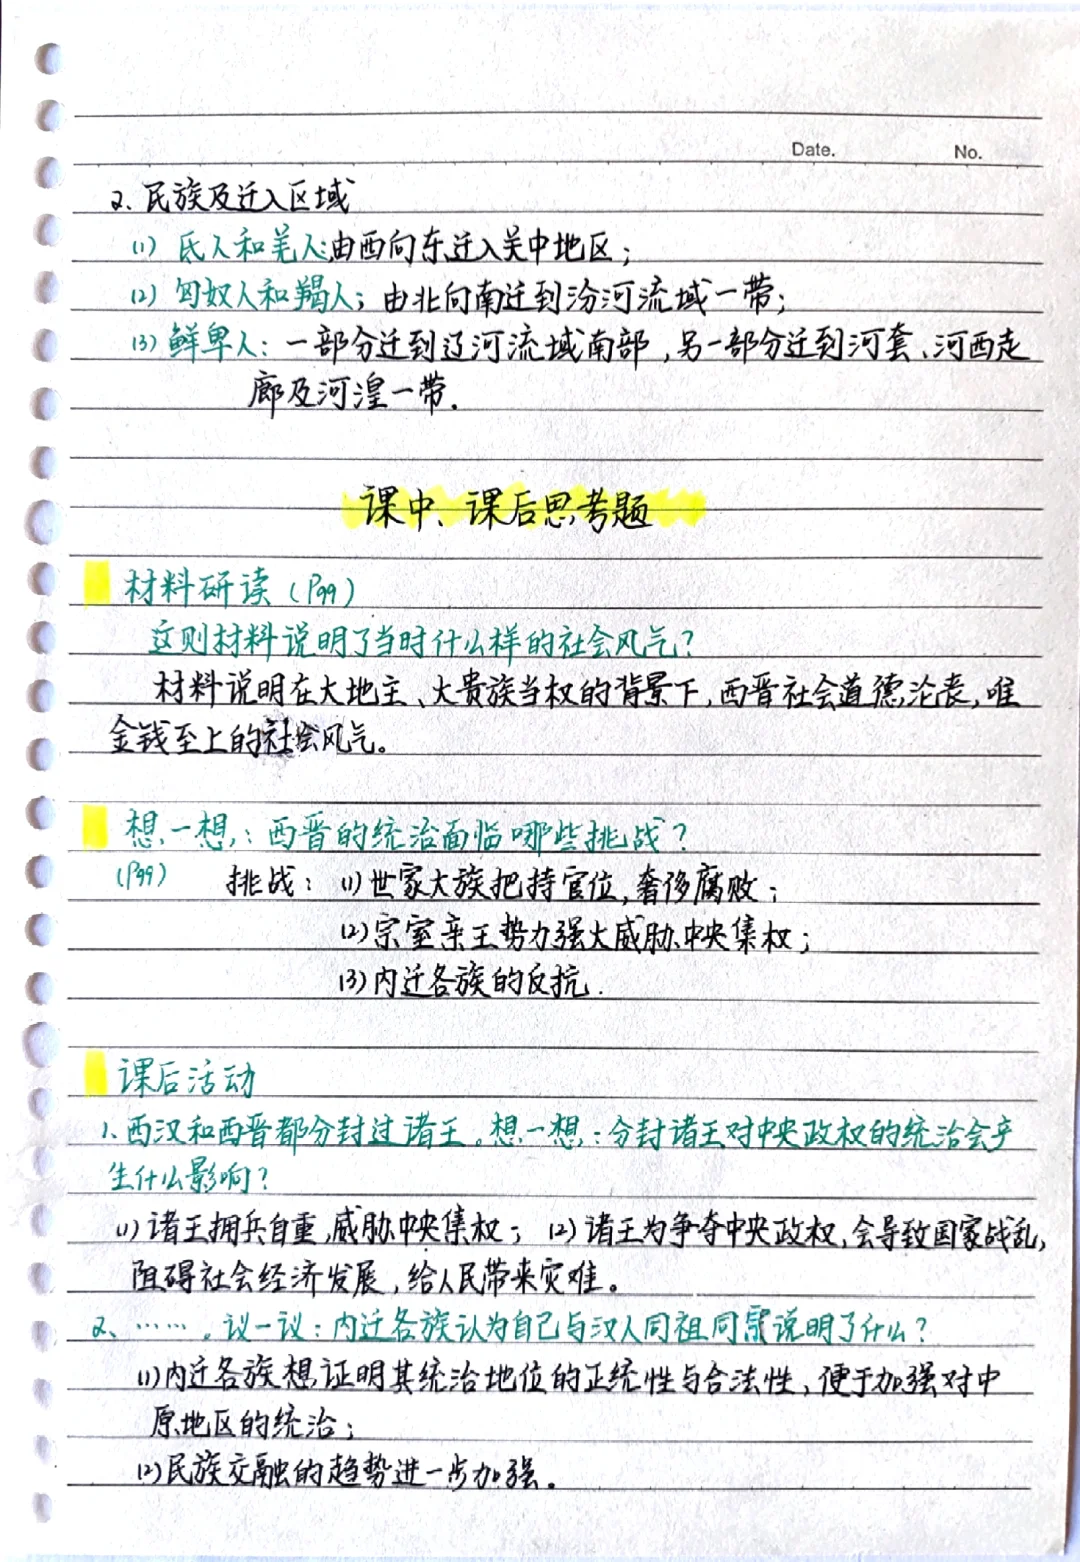 Date.
No.
2. 民族及迁入区域
(1) 氐人和羌人:由西向东迁入关中地区;
(2) 匈奴人和羯人; 由北向南迁到汾河流域一带;
(3) 鲜卑人: 一部分迁到辽河流域南部,另一部分迁到河套、河西走
廊及河湟一带.
课中、课后思考题
材料研读(P99)
这则材料说明了当时什么样的社会风气?
材料说明在大地主、大贵族当权的背景下,西晋社会道德沦丧,唯
金钱至上的社会风气。
想一想: 西晋的统治面临哪些挑战?
(P99) 挑战: (1)世家大族把持官位,奢侈腐败;
(2)宗室亲王势力强大威胁中央集权;
(3)内迁各族的反抗.
课后活动
1.西汉和西晋都分封过诸王。想一想:分封诸王对中央政权的统治会产
生什么影响?
(1)诸王拥兵自重,威胁中央集权; (2)诸王为争夺中央政权,会导致国家战乱,
阻碍社会经济发展,给人民带来灾难。
2、……。议一议:内迁各族认为自己与汉人同祖同宗说明了什么?
(1)内迁各族想证明其统治地位的正统性与合法性,便于加强对中
原地区的统治;
(2)民族交融的趋势进一步加强。